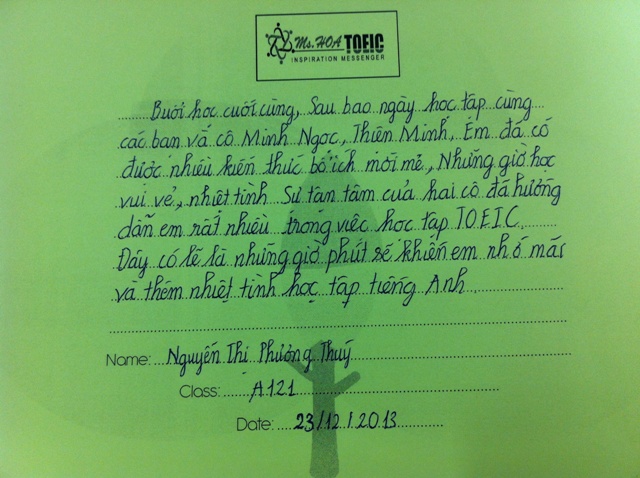 Ms. HOA TOEIC
INSPIRATION MESSENGER
Buổi học cuối cùng, Sau bao ngày học tập cùng
các bạn và cô Minh Ngọc, Thiên Minh, Em đã có
được nhiều kiến thức bổ ích mới mẻ, Những giờ học
vui vẻ, nhiệt tình Sự tận tâm của hai cô đã hướng
dẫn em rất nhiều trong việc học tập TOEIC.
Đây có lẽ là những giờ phút sẽ khiến em nhớ mãi
và thêm nhiệt tình học tập tiếng Anh
Name: Nguyễn Thị Phương Thuý
Class: A121
Date: 23/12/2013